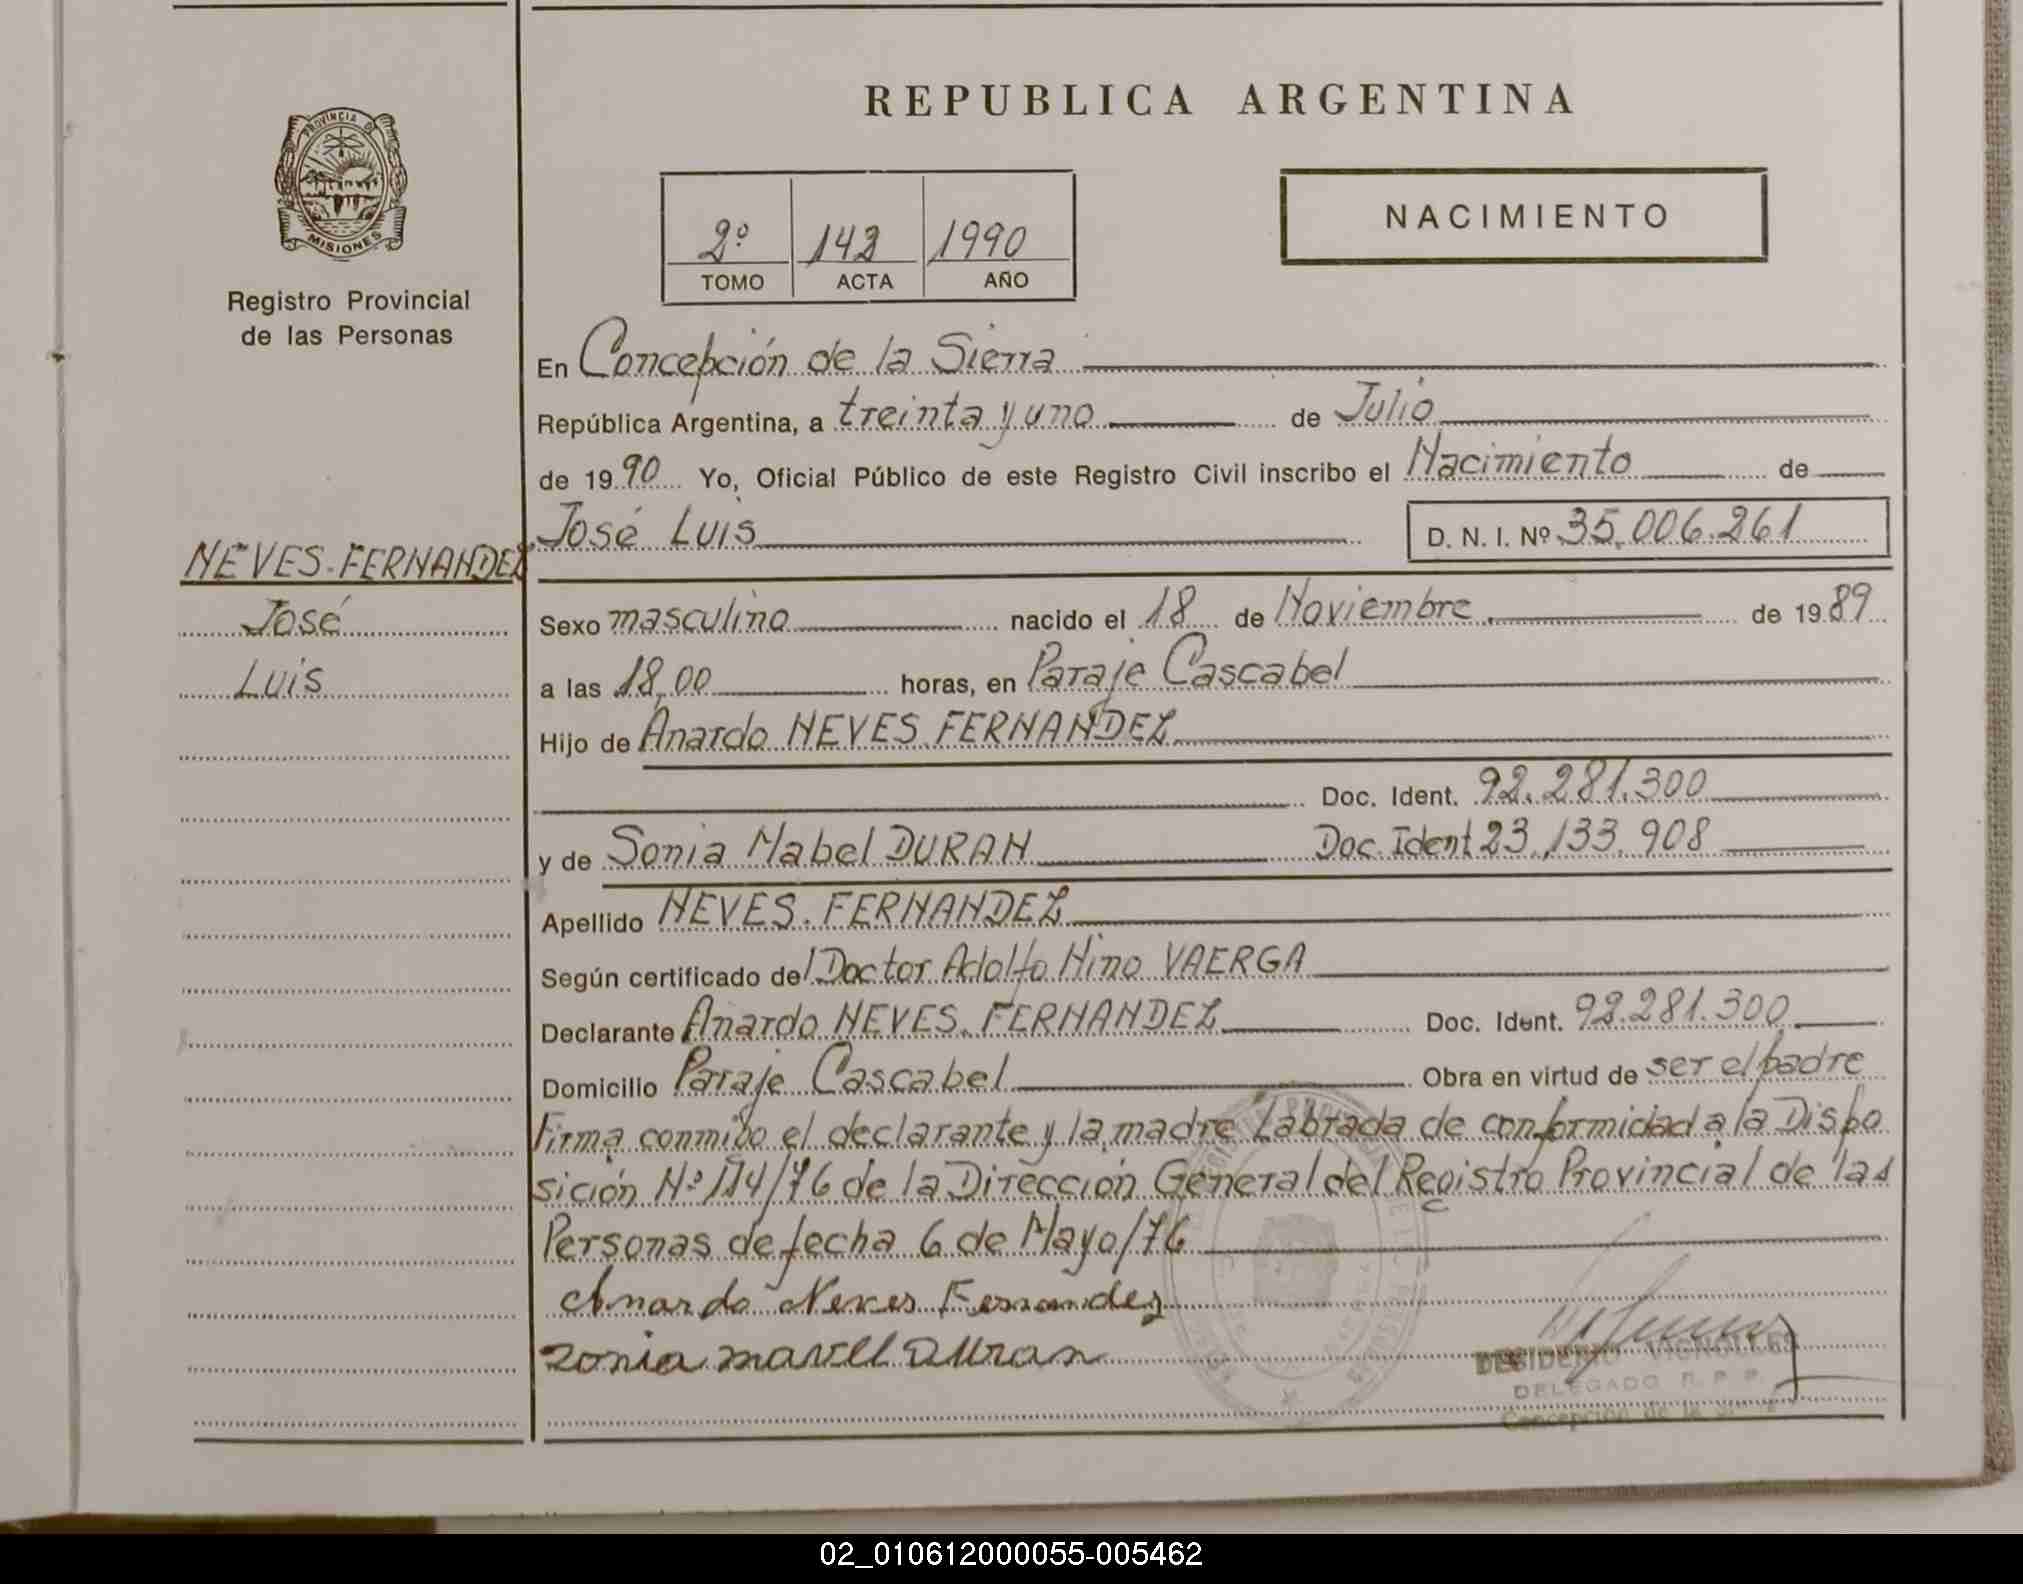 REPUBLICA ARGENTINA
PROVINCIA DE
MISIONES
Registro Provincial
de las Personas
2º 142 1990
TOMO ACTA AÑO
NACIMIENTO
En Concepción de la Sierra
República Argentina, a treinta y uno de Julio
de 1990 Yo, Oficial Público de este Registro Civil inscribo el Nacimiento de
José Luis D. N. I. Nº 35.006.261
NEVES.FERNANDEZ
José
Luis
Sexo masculino nacido el 18 de Noviembre de 1989
a las 18,00 horas, en Paraje Cascabel
Hijo de Anardo NEVES.FERNANDEZ
Doc. Ident. 92.281.300
y de Sonia Mabel DURAN Doc. Ident 23.133.908
Apellido NEVES.FERNANDEZ
Según certificado del Doctor Adolfo Nino VAERGA
Declarante Anardo NEVES.FERNANDEZ Doc. Ident. 92.281.300
Domicilio Paraje Cascabel Obra en virtud de ser el padre
Firma conmigo el declarante y la madre Labrada de conformidad a la Dispo
sición Nº 114/76 de la Dirección General del Registro Provincial de las
Personas de fecha 6 de Mayo/76
Anardo Neves Fernandez
Zonia mavell Duran
DESIDERIO VIGNOLLES
DELEGADO R. P. P.
Concepción de la
02_010612000055-005462